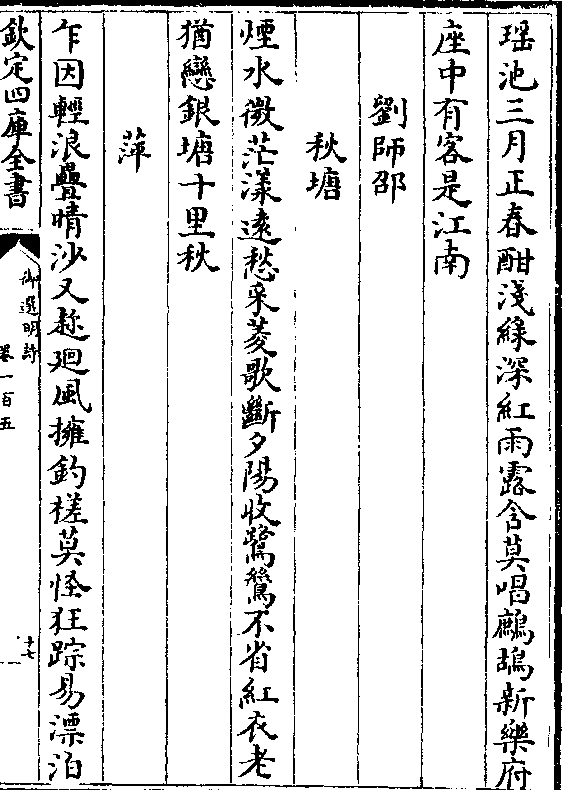 瑶池三月正春酣淺綠深紅雨露含莫唱鷓鴣新樂府
座中有客是江南
劉師邵
秋塘
煙水微茫漾遠愁采菱歌斷夕陽收鷺鷥不省紅衣老
猶戀銀塘十里秋
萍
乍因輕浪疊晴沙又趂廻風擁釣槎莫怪狂踪易漂泊
欽定四庫全書
御選明詩
卷一百五
十七